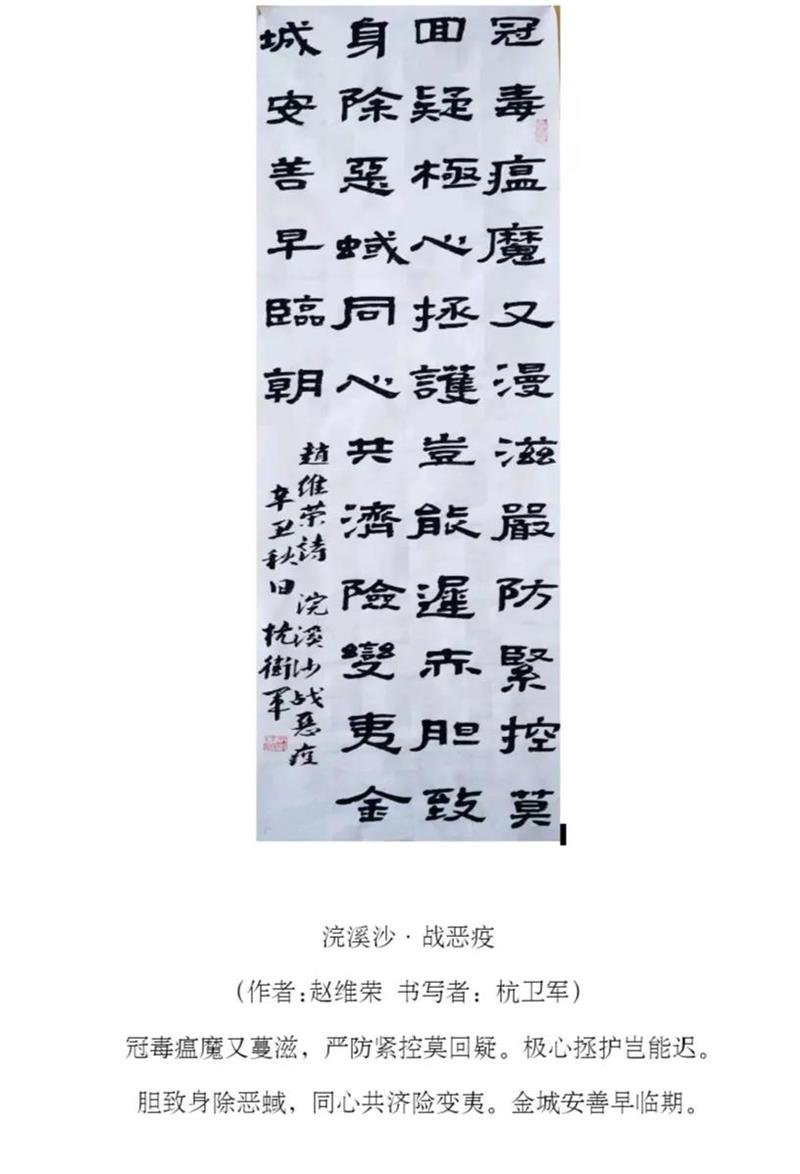 冠毒瘟魔又漫滋嚴防緊控莫
回疑極心拯護豈能遲赤胆致
身除惡蜮同心共濟險變夷金
城安善早臨朝
趙維荣詩 浣溪沙战惡疫
辛丑秋日杭衛軍
浣溪沙·战恶疫
（作者：赵维荣 书写者：杭卫军）
冠毒瘟魔又蔓滋，严防紧控莫回疑。极心拯护岂能迟。
胆致身除恶蜮，同心共济险变夷。金城安善早临期。